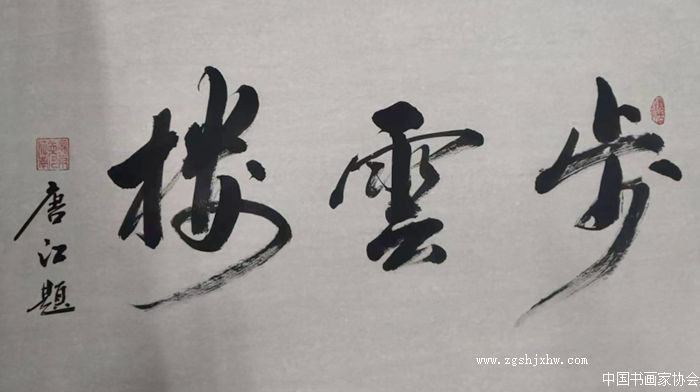 步雲楼
唐江題
www.zgshjxhw.com
中国书画家协会